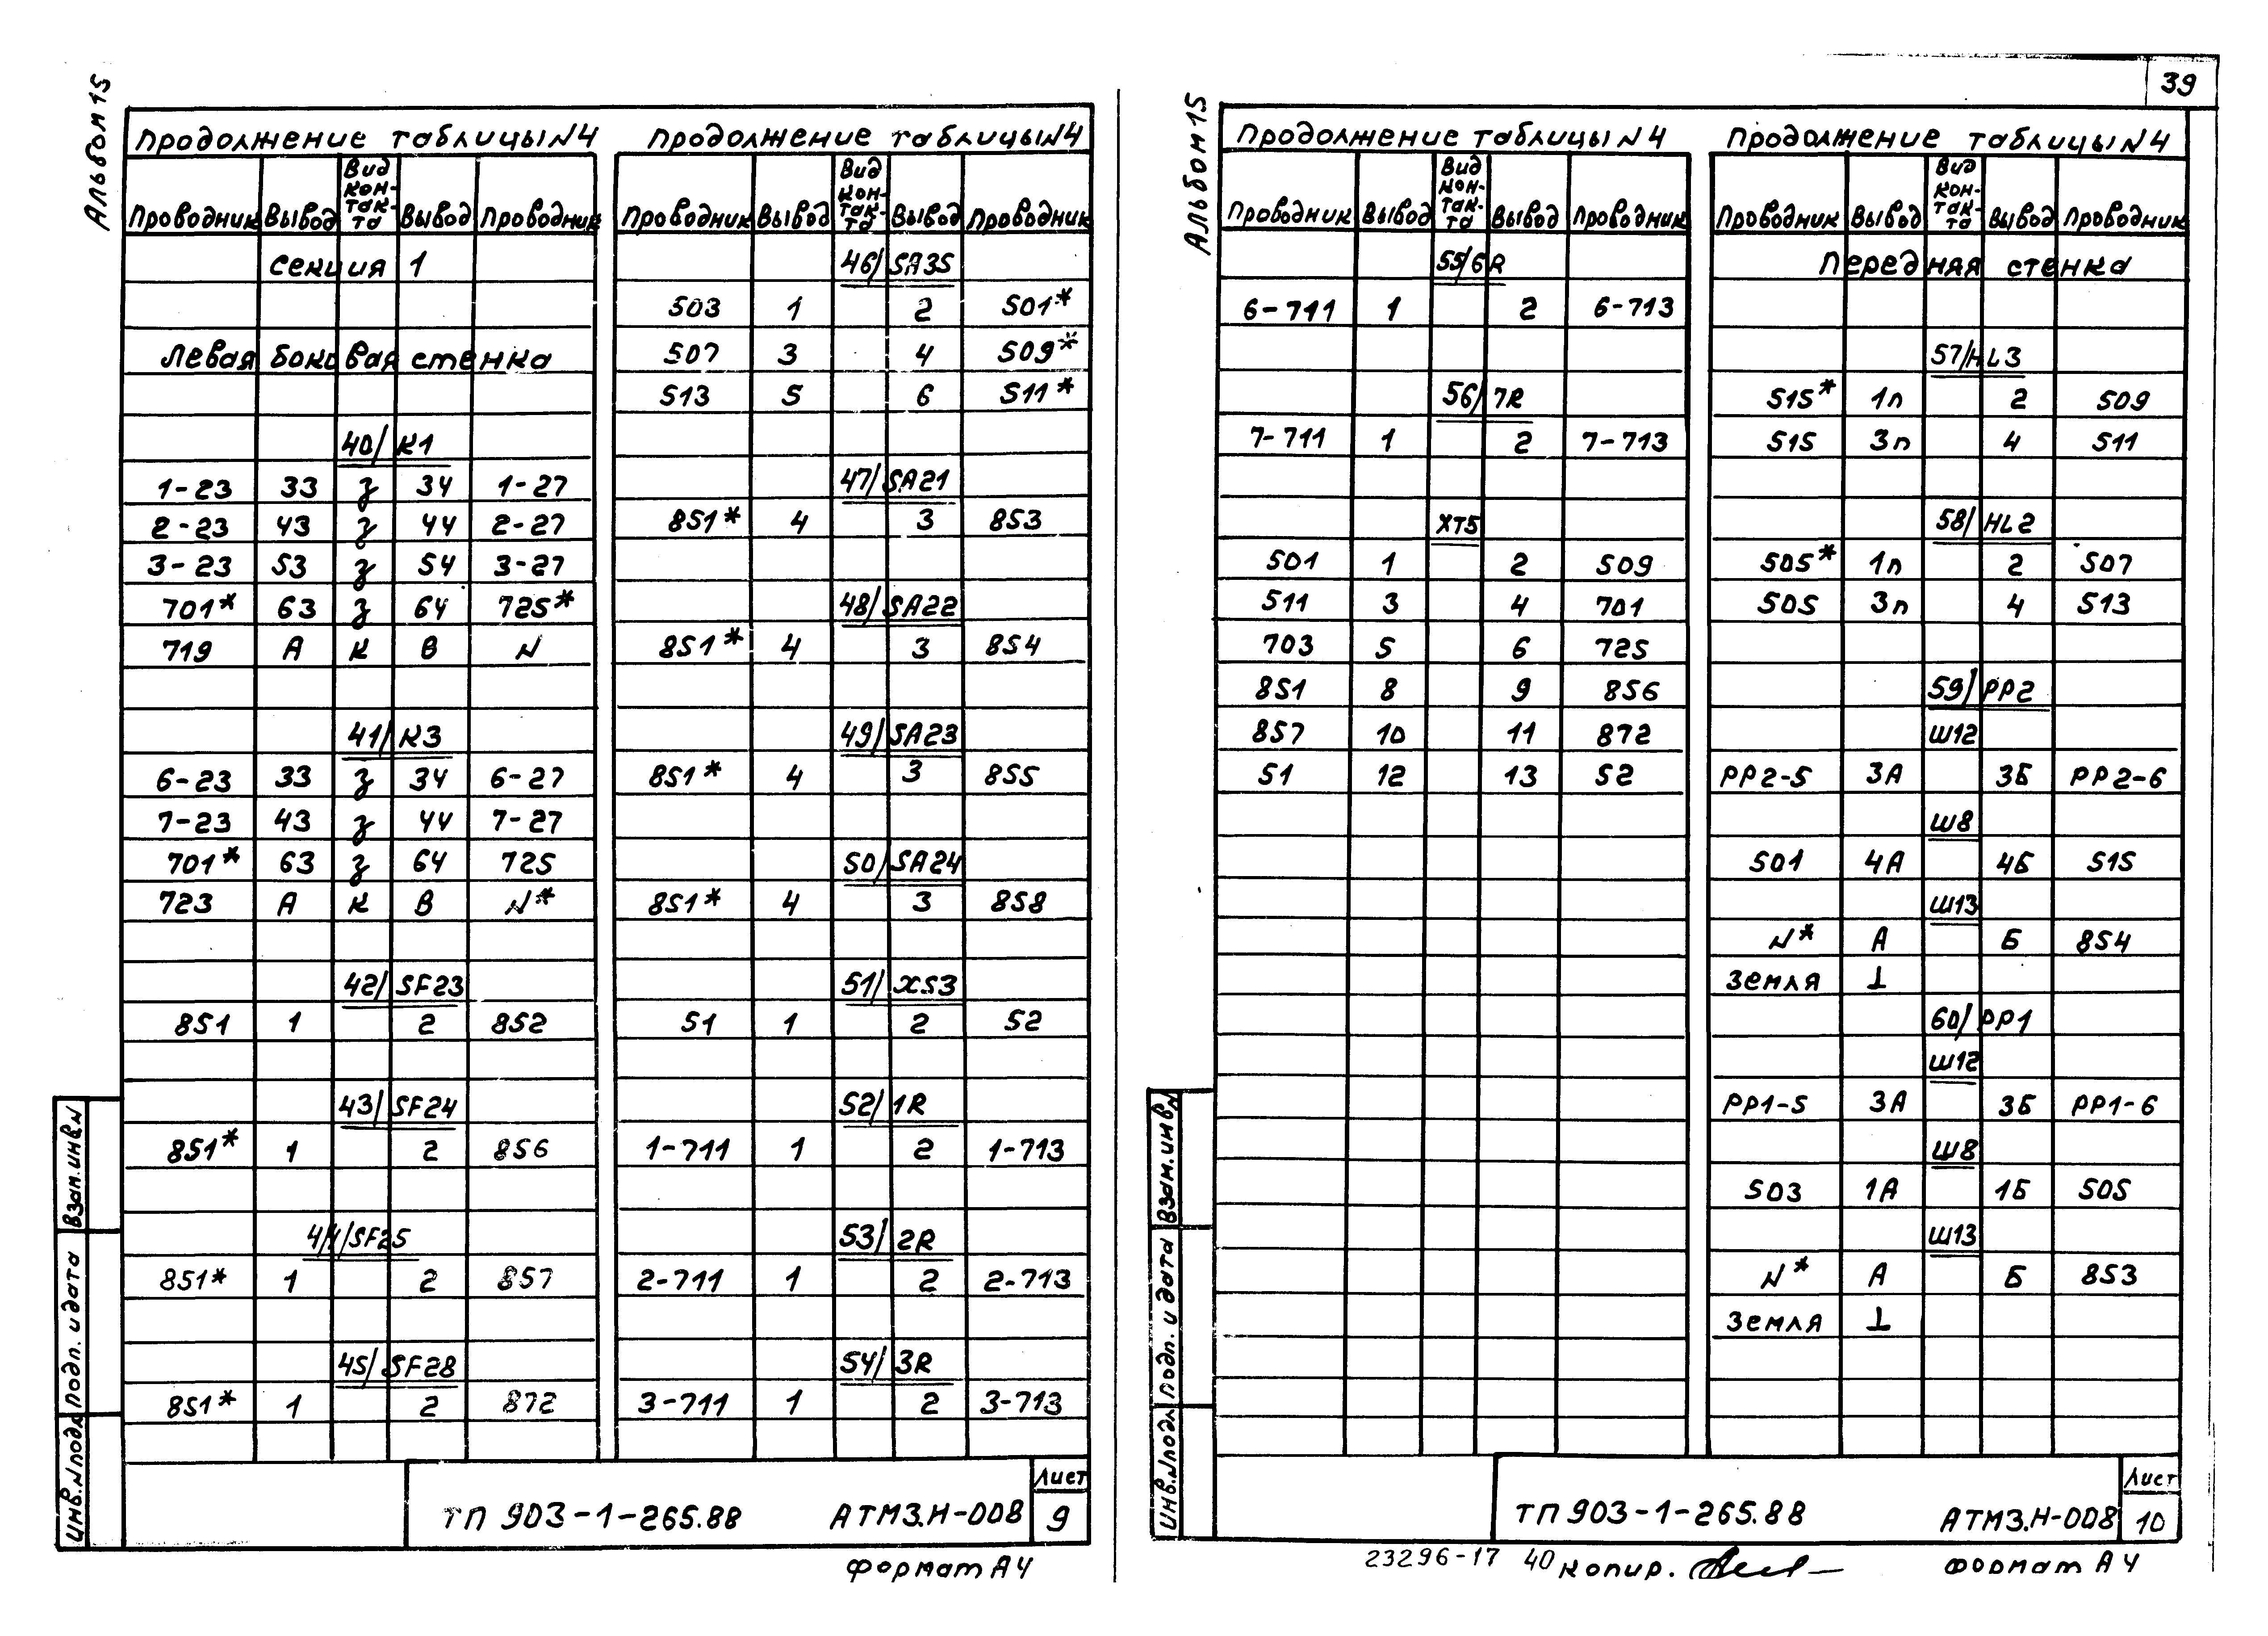 39
Альбом 15
Продолжение таблицы N4
Проводник Вывод Вид кон-так-та Вывод Проводник
Секция 1
Левая боковая стенка
40/К1
1-23 33 з 34 1-27
2-23 43 з 44 2-27
3-23 53 з 54 3-27
701* 63 з 64 725*
719 А К В N
41/К3
6-23 33 з 34 6-27
7-23 43 з 44 7-27
701* 63 з 64 725
723 А К В N*
42/SF23
851 1 2 852
43/SF24
851* 1 2 856
44/SF25
851* 1 2 857
45/SF28
851* 1 2 872
Продолжение таблицы N4
Проводник Вывод Вид кон-так-та Вывод Проводник
46/SA35
503 1 2 501*
507 3 4 509*
513 5 6 511*
47/SA21
851* 4 3 853
48/SA22
851* 4 3 854
49/SA23
851* 4 3 855
50/SA24
851* 4 3 858
51/XS3
51 1 2 52
52/1R
1-711 1 2 1-713
53/2R
2-711 1 2 2-713
54/3R
3-711 1 2 3-713
Взам.инв.N
Подп. и дата
Инв.Nподл.
ТП 903-1-265.88 АТМ3.Н-008
Лист
9
Формат А4
Альбом 15
Продолжение таблицы N4
Проводник Вывод Вид кон-так-та Вывод Проводник
55/6R
6-711 1 2 6-713
56/7R
7-711 1 2 7-713
ХТ5
501 1 2 509
511 3 4 701
703 5 6 725
851 8 9 856
857 10 11 872
51 12 13 52
Продолжение таблицы N4
Проводник Вывод Вид кон-так-та Вывод Проводник
Передняя стенка
57/HL3
515* 1п 2 509
515 3п 4 511
58/HL2
505* 1п 2 507
505 3п 4 513
59/РР2
Ш12
РР2-5 3А 3Б РР2-6
Ш8
501 4А 4Б 515
Ш13
N* А Б 854
Земля ⊥
60/РР1
Ш12
РР1-5 3А 3Б РР1-6
Ш8
503 1А 1Б 505
Ш13
N* А Б 853
Земля ⊥
Взам.инв.N
Подп. и дата
Инв.Nподл.
ТП 903-1-265.88 АТМ3.Н-008
Лист
10
23296-17 40 Копир.
Формат А4